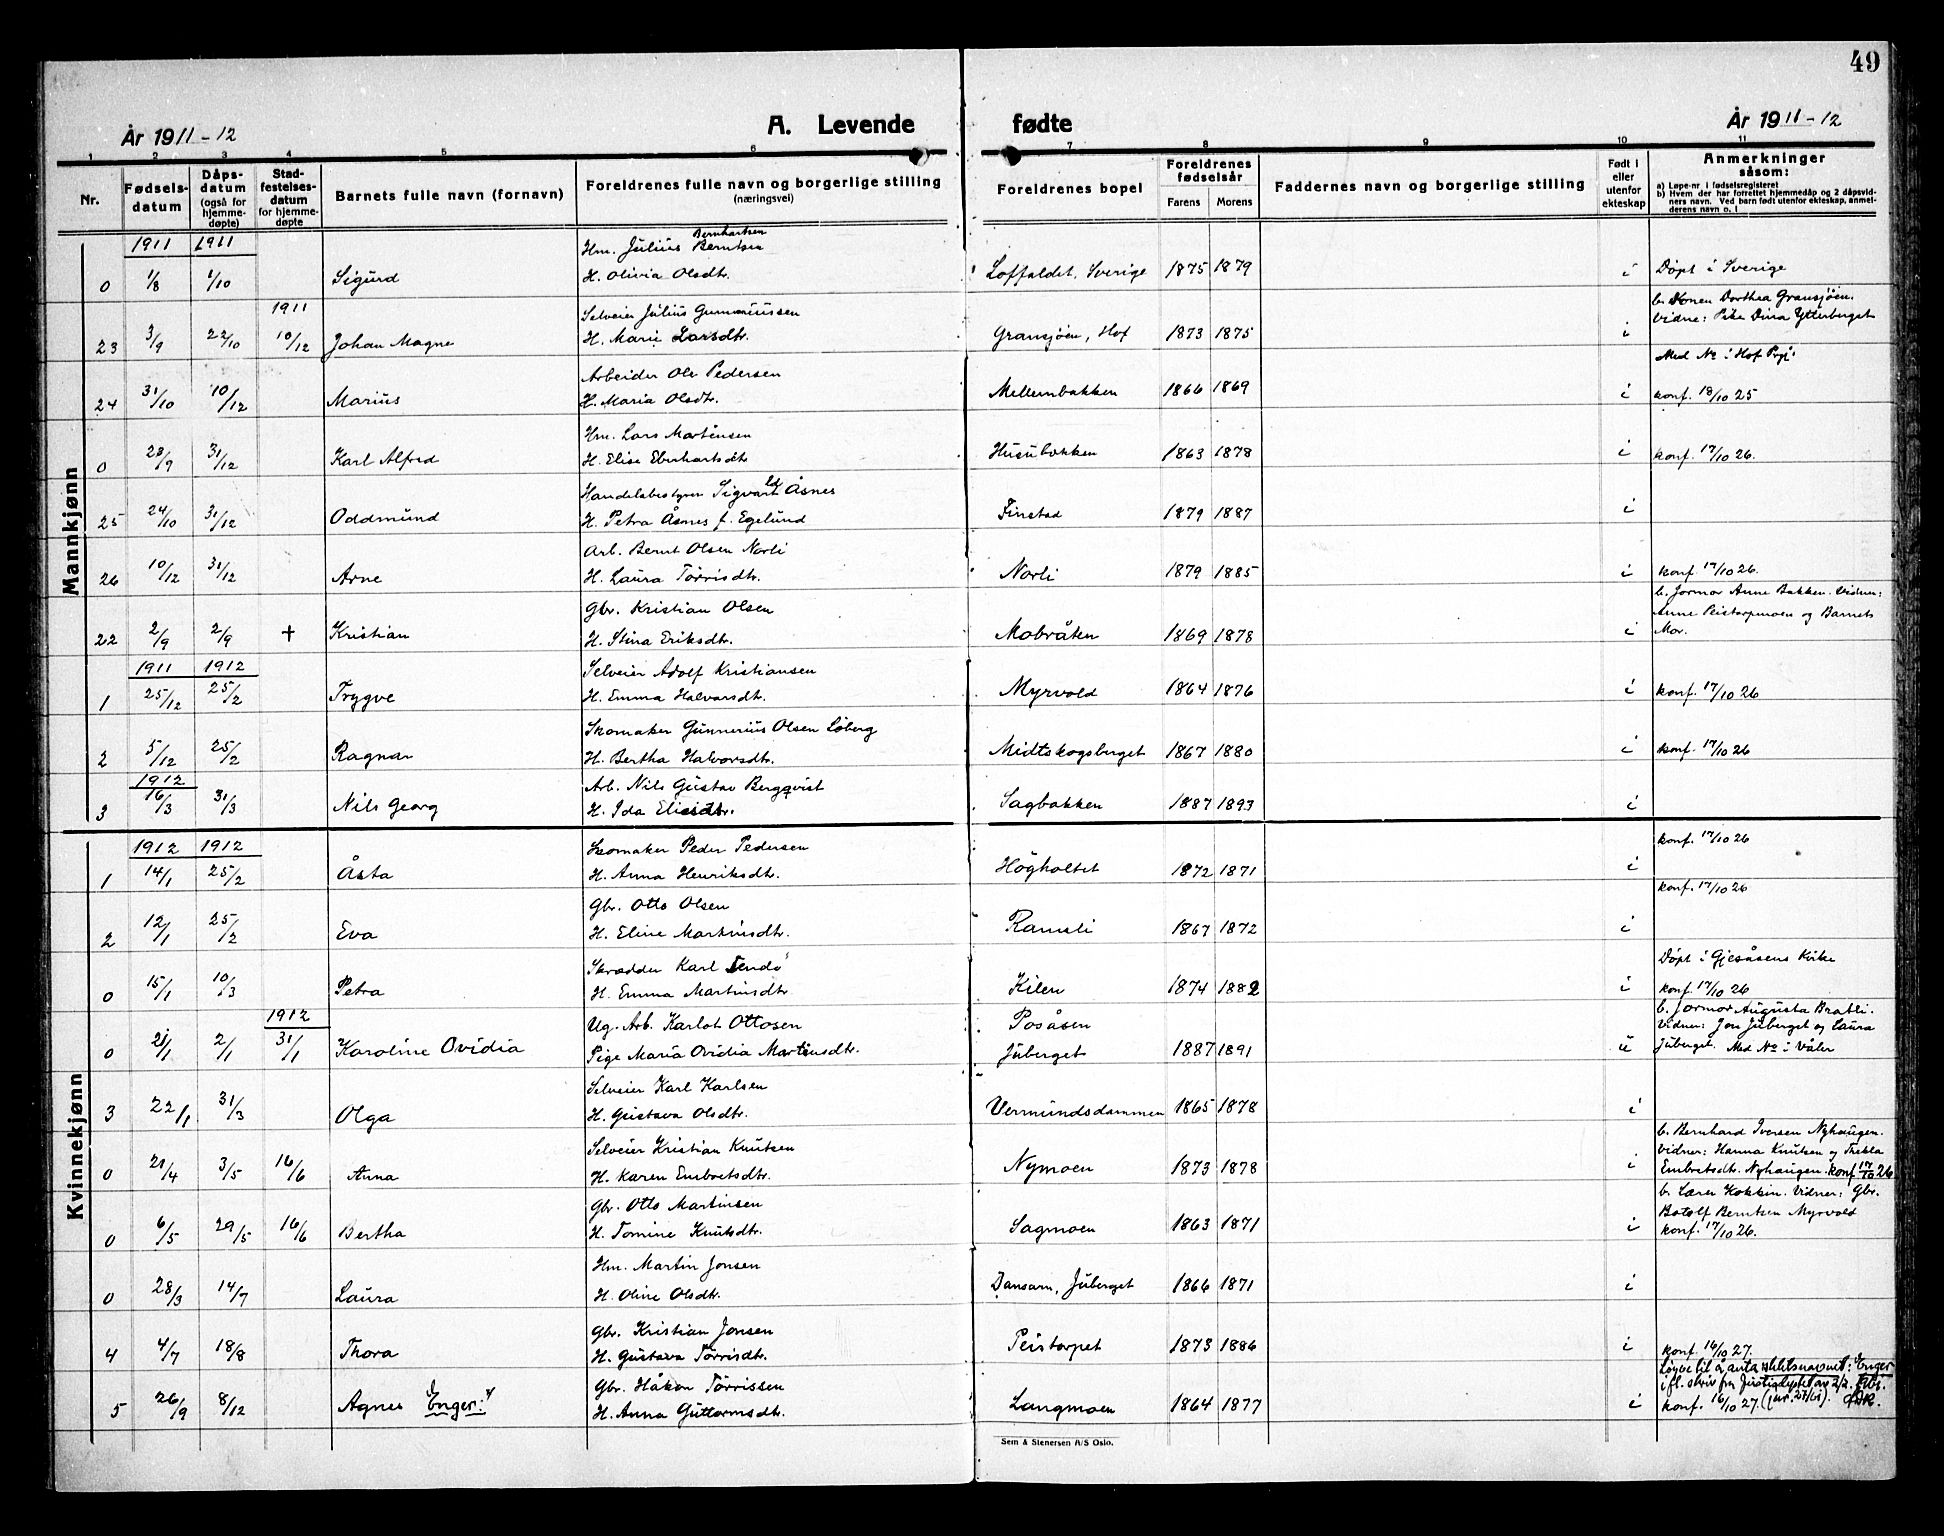 49
År 1911-12
A. Levende fødte
År 1911-12
1 2 3 4 5 6 7 8 9 10 11
Nr.
Fødsels-
datum
Dåps-
datum
(også for
hjemme-
døpte)
Stad-
festelses-
datum
for hjemme-
døpte
Barnets fulle navn (fornavn)
Foreldrenes fulle navn og borgerlige stilling
(næringsvei)
Foreldrenes bopel
Foreldrenes
fødselsår
Farens Morens
Faddernes navn og borgerlige stilling
Født i
eller
utenfor
ekteskap
Anmerkninger
såsom:
a) Løpe-nr i fødselsregisteret
b) Hvem der har forrettet hjemmedåp og 2 dåpsvid-
ners navn. Ved barn født utenfor ekteskap, anmel-
derens navn o. l
Mannkjønn
1911 1911
Bernhartsen
Hm. Julius Berntsen
0 1/8 1/10 Sigurd H. Olivia Olsdtr. Loffaldet, Sverige 1875 1879 i Døpt i Sverige
1911
Selveier Julius Gunnariussen
23 3/9 22/10 10/12 Johan Magne H. Marie Larsdtr. Gransjöen, Hof 1873 1875 i
b. Konen Dorthea Gransjöen.
Vidne: Pike Dina Ytterberget
Med No i Hof Prgj.
Arbeider Ole Pedersen
24 31/10 10/12 Marius H. Maria Olsdtr. Mellembakken 1866 1869 i konf. 18/10 25
Hm. Lars Martinsen
0 28/9 31/12 Karl Alfred H. Elise Eberhartsdtr Husubakken 1863 1878 i konf. 17/10 26.
Handelsbestyrer Sigvart Åsnes
ld
25 24/10 31/12 Oddmund H. Petra Åsnes f. Egelund Finstad 1879 1887 i
Arb. Bernt Olsen Norli
26 10/12 31/12 Arne H. Laura Törrisdtr. Norli 1879 1885 i konf. 17/10 26.
Gbr. Kristian Olsen
22 2/9 2/9 + Kristian H. Stina Eriksdtr. Mobråten 1869 1878 i
b. Jormor Anne Bakken. Vidner:
Anne Peistorpmoen og Barnets
Mor.
1911 1912
Selveier Adolf Kristiansen
1 25/12 25/2 Trygve H. Emma Halvorsdtr. Myrvold 1864 1876 i konf. 17/10 26
Skomaker Gunnerius Olsen Löberg
2 5/12 25/2 Ragnar H. Bertha Halvorsdtr. Midtskogsberget 1867 1880 i konf. 17/10 26
1912
Arb. Nils Gustav Bergqvist
3 16/3 31/3 Nils Georg H. Ida Eliesdtr. Sagbakken 1887 1893 i
Kvinnekjønn
1912 1912
Skomaker Peder Pedersen konf. 17/10 26
1 14/1 25/2 Åsta H. Anna Henriksdtr. Högholtet 1872 1871 i
Gbr. Otto Olsen konf. 17/10 26
2 12/1 25/2 Eva H. Eline Martinsdtr. Ramsli 1867 1872 i
Skrædder Karl Døpt i Gjesåsens Kirke
0 15/1 10/3 Petra H. Emma Martinsdtr Kilen 1874 1882 i konf. 17/10 26
1912
Ug. Arb. Karlot Ottosen Posåsen
0 21/1 2/1 31/1 Karoline Ovidia Pige Maria Ovidia Martinsdtr. Juberget 1887 1891 u
b. Jormor Augusta Bratli.
Vidner: Jon Juberget og Laura
Juberget. Med No i Våler
Selveier Karl Karlsen
3 22/1 31/3 Olga H. Gustava Olsdtr. Vermundsdammen 1865 1878 i
Selveier Kristian Knutsen
0 21/4 3/5 16/6 Anna H. Karen Embretsdtr. Nymoen 1873 1878 i
b. Bernhard Iversen Nyhaugen.
Vidner: Hanna Knutsen og Thekla
Embretsdtr. Nyhaugen. konf 17/10 26
Gbr. Otto Martinsen
0 6/5 29/5 16/6 Bertha H. Tomine Knutsdtr. Sagmoen 1863 1871 i
b. Lærer Kokkin. Vidner: Gbr.
Botolf Berntsen Myrvold
konf. 17/10 26.
Hm. Martin Jonsen
0 28/3 14/7 Laura H. Oline Olsdtr. Dansarn, Juberget 1866 1871 i
Gbr. Kristian Jonsen
4 4/7 18/8 Thora H. Gustava Törrisdtr. Peistorpet 1873 1886 i konf. 16/10 27.
Gbr. Håkon Törrissen
5 26/9 8/12 Agnes Enger H. Anna Guttormsdtr. Langmoen 1864 1877 i
Løyve til å anta slektsnavnet: Enger
i fl. skriv fra
konf. 16/10 27.
Sem & Stenersen A/S Oslo.